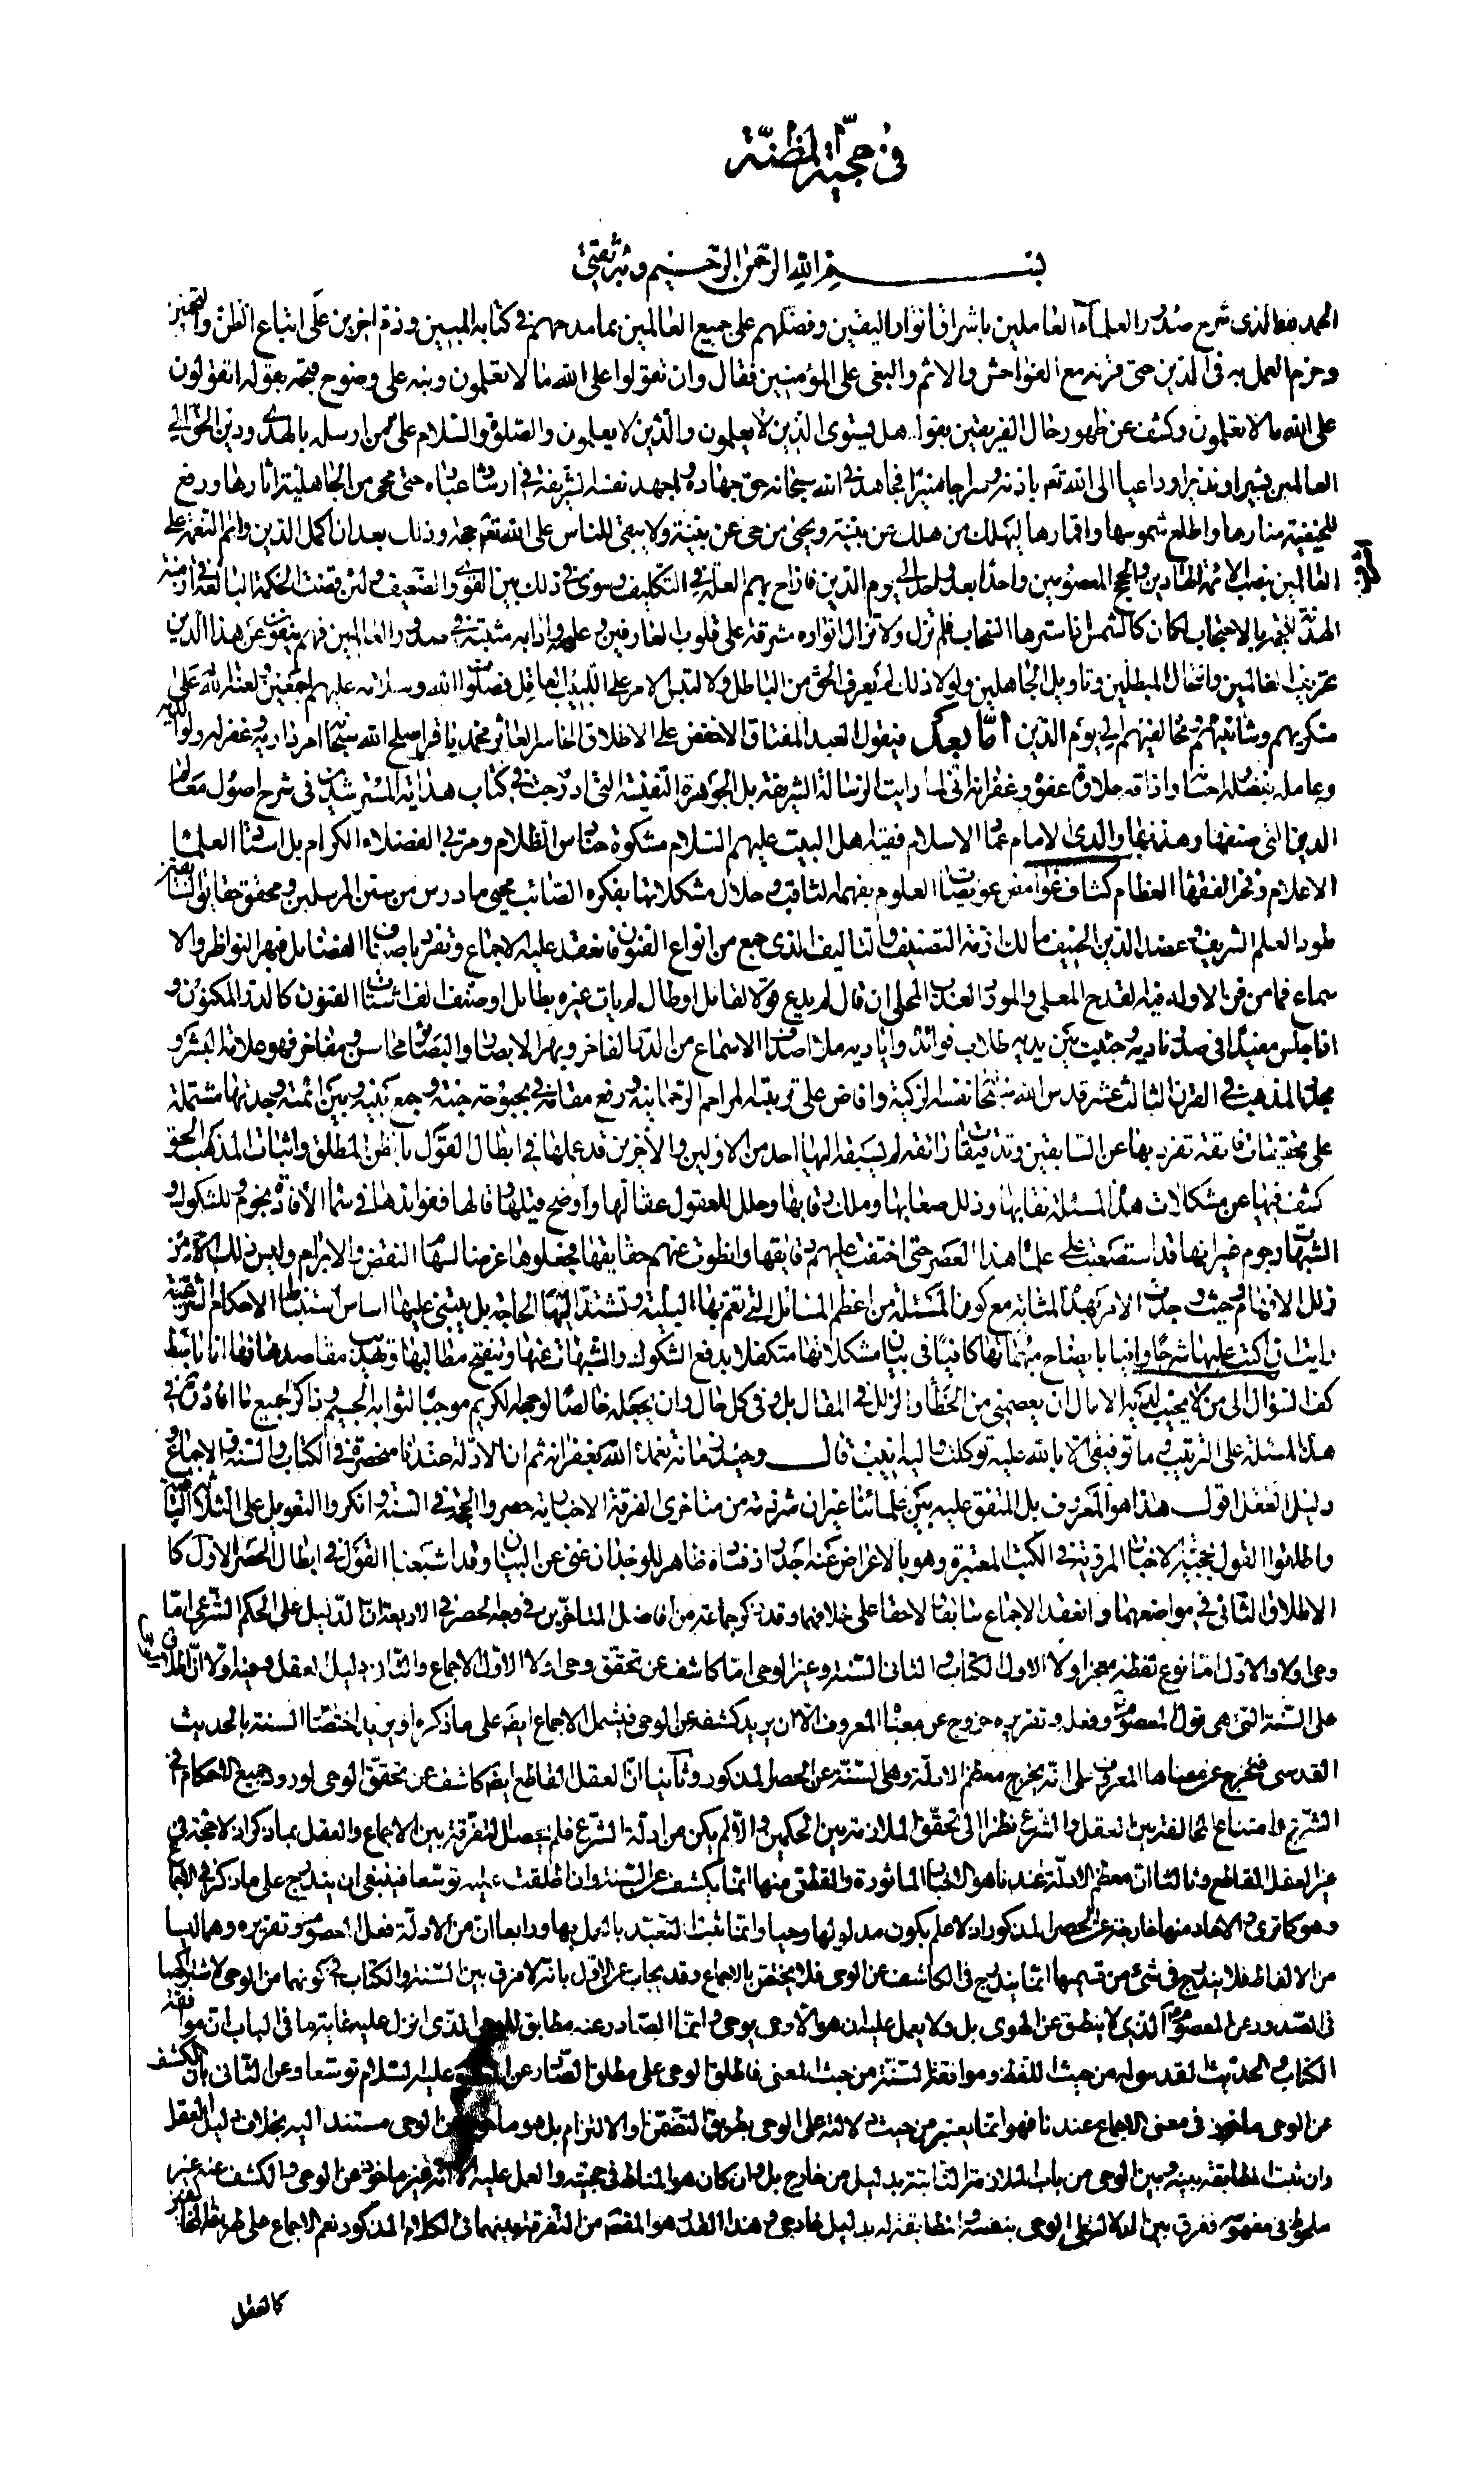 في حجية المظنة
بسم الله الرحمن الرحيم وبه ثقتي
الحمد لله الذي شرح صدور العلماء العاملين باشراق انوار اليقين وفضلهم على جميع العالمين بما مدحهم في كتابه المبين وذم اخرين على اتباع الظن والتخمين
وحرم العمل به في الدين حتى قرنه مع الفواحش والاثم والبغي على المؤمنين فقال وان تقولوا على الله ما لا تعلمون ونبه على وضوح قبحه بقوله اتقولون
على الله ما لا تعلمون وكشف عن ظهور حال الفريقين بقوله هل يستوي الذين يعلمون والذين لا يعلمون والصلوة والسلام على من ارسله بالهدى ودين الحق الى
العالمين بشيرا ونذيرا وداعيا الى الله تعم باذنه وسراجا منيرا فجاهد في الله سبحانه حق جهاده واجهد نفسه الشريفة في ارشاد عباده حتى محى من الجاهلية اثارها ورفع
للحنيفية منارها واطلع شموسها واقمارها ليهلك من هلك عن بينة ويحيى من حي عن بينة ولا يبقى للناس على الله تعم حجة وذلك بعد ان اكمل الدين واتم النعمة على
العالمين بنصب الائمة الهادين والحجج المعصومين واحدا بعد واحد الى يوم الدين فازاح بهم العلة في التكاليف وسوى في ذلك بين القوي والضعيف ولئن قضت الحكمة البالغة في ازمنة
الهدنة بالاحتجاب لكان كالشمس اذا سترها السحاب فلم تزل ولا تزال انواره مشرقة على قلوب العارفين وعلومه وادابه مثبتة في صدور العالمين فهم ينفون عن هذا الدين
تحريف الغالين وانتحال المبطلين وتاويل الجاهلين ولولا ذلك لم يعرف الحق من الباطل ولالتبس الامر على اللبيب العاقل فصلوات الله وسلامه عليهم اجمعين ولعنة الله على
منكريهم وشانئيهم ومخالفيهم الى يوم الدين اما بعد فيقول العبد المفتاق الاخفض على الاطلاق الخاسر العاثر محمد باقر اصلح الله سبحانه امر داريه وغفر له ولوالديه
وعامله بفضله واحسانه واذاقه حلاوة عفوه وغفرانه اني لما رايت الرسالة الشريفة بل الجوهرة النفيسة التي ادرجت في كتاب هداية المسترشدين في شرح اصول معالم
الدين التي صنفها وهذبها والدي الامام عماد الاسلام فقيه اهل البيت عليهم السلام مشكوة حنادس الظلام ومربي الفضلاء الكرام بل استاد العلماء
الاعلام وفخر الفقهاء العظام كشاف غوامض عويصات العلوم بفهمه الثاقب وحلال مشكلاتها بفكره الصائب محيي ما درس من سنن المرسلين ومحقق حقايق السابقين
طود العلم الشريف وعضد الدين الحنيف مالك ازمة التصنيف والتاليف الذي جمع من انواع الفنون فانعقد عليه الاجماع وتفرد باصناف الفضايل فبهر النواظر والا
سماع فما من فن الا وله فيه القدح المعلى والمورد العذب المحلى ان قال لم يدع قولا لقائل او طال لم يات غيره بطايل او صنف الف شتات الفنون كالدر المكنون و
اذا جلس مفيدا في صدر ناديه وجثيت بين يديه طلاب فوائده واياديه ملأ اصداف الاسماع من الدر الفاخر وبهر الابصار والبصائر محاسن ومفاخر فهو علامة البشر و
مجدد المذهب في القرن الثالث عشر قدس الله سبحانه نفسه الزكية وافاض على تربته المراحم الرحمانية ورفع مقامه في بحبوحة جنته وجمع بينه وبين ائمته وجدتها مشتملة
على تحقيقات فائقة تفرد بها عن السابقين وتدقيقات رائقة لم يسبقه اليها احد من الاولين والاخرين قد عملها في ابطال القول بالظن المطلق واثبات المذهب الحق
كشف فيها عن مشكلات هذه المسئلة نقابها وذلل صعابها وملك رقابها وحلل للعقول عقالها واوضح قيلها وقالها ففوائدها في سماء الافادة نجوم وللشكوك و
الشبهات رجوم غير انها قد استصعبت على علماء هذا العصر حتى اختفت عليهم دقايقها وانطوت عنهم حقايقها فجعلوها غرضا لسهام النقض والابرام وليس ذلك الا من
زلل الافهام وحيث وجدت الامر بهذه المثابة مع كون المسئلة من اعظم المسائل التي تعم بها البلية وتشتد اليها الحاجة بل يبتني عليها اساس استنباط الاحكام الشرعية
رايت ان اكتب عليها شرحا وافيا بايضاح مبهماتها كافيا في بيان مشكلاتها متكفلا بدفع الشكوك والشبهات عنها وتنقيح مطالبها وتهذيب مقاصدها فها انا باسط
كف السؤال الى من لا يخيب لديه الامال ان يعصمني من الخطأ والزلل في المقال بل وفي كل حال وان يجعله خالصا لوجهه الكريم موجبا لثوابه الجسيم وذاكر جميع ما افاده في
هذه المسئلة على الترتيب وما توفيقي الا بالله عليه توكلت واليه انيب قال وحيد زمانه تغمده الله بغفرانه ثم ان الادلة عندنا منحصرة في الكتاب والسنة والاجماع و
دليل العقل اقول هذا هو المعروف بل المتفق عليه بين علمائنا غير ان شرذمة من متاخري الفرقة الاخبارية حصروا الحجة في السنة وانكروا التعويل على الثلثة الباقية
واطلقوا القول بحجية الاخبار المروية في الكتب المعتبرة وهو بالاعراض عنه اجدر اذ فساده ظاهر للوجدان غني عن البيان وقد اشبعنا القول في ابطال الحصر الاول كا
الاطلاق الثاني في مواضعهما وانعقد الاجماع سابقا ولاحقا على خلافهما وقد ذكر جماعة من افاضل المتاخرين في وجه الحصر في الاربعة ان الدليل على الحكم الشرعي اما
وحي اولا والاول اما نوع لفظه معجز اولا الاول الكتاب والثاني السنة وغير الوحي اما كاشف عن تحقق وحي اولا الاول الاجماع والثاني دليل العقل وفيه اولا ان
على السنة التي هي قول المعصوم وفعله وتقريره خروج عن معناه المعروف الا ان يريد كشفه عن الوحي فيشمل الاجماع ايضا على ما ذكره او يريد اختصاص السنة بالحديث
القدسي فيخرج عن معناها المعروف على انه يخرج معظم الادلة وهي السنة عن الحصر المذكور وثانيا ان العقل القاطع ايضا كاشف عن تحقق الوحي لورود جميع الاحكام في
الشرع وامتناع المخالفة بين العقل والشرع نظرا الى تحقق الملازمة بين الحكمين والا لم يكن من ادلة الشرع فلم يحصل التفرقة بين الاجماع والعقل بما ذكر اذ لا حجة في
غير العقل القاطع وثالثا ان معظم الادلة عندنا هو الاخبار الماثورة والقطعي منها انما يكشف عن السنة وان اطلقت عليه توسعا فينبغي ان يندرج على ما ذكر في الاجماع
وهو كما ترى والاحاد منها خارجة عن الحصر المذكور اذ لا علم بكون مدلولها وحيا وانما ثبت التعبد بالعمل بها ورابعا ان من الادلة فعل المعصوم وتقريره وهما ليسا
من الالفاظ فلا يندرج في شئ من قسيمها انما يندرج في الكاشف عن الوحي فلا يختص بالاجماع وقد يجاب عن الاول بانه لا فرق بين السنة والكتاب في كونهما من الوحي لاشتراكهما
في الصدور عن المعصوم الذي لا ينطق عن الهوى بل ولا يعمل عليه ان هو الا وحي يوحى وانما الصادر عنه مطابق للوحي الذي انزل عليه غاية ما في الباب ان موافقة
الكتاب والحديث القدسي له من حيث اللفظ وموافقة السنة من حيث المعنى فاطلق الوحي على مطلق الصادر عن عليه السلام توسعا وعن الثاني بان الكشف
عن الوحي ماخوذ في معنى الاجماع عندنا فهو انما يعتبر من حيث دلالته على الوحي بطريق التضمن والالتزام بل هو ماخوذ من الوحي مستند اليه بخلاف دليل العقل
وان ثبت المطابقة بينه وبين الوحي من باب الملازمة الثابتة بدليل من خارج بل وان كان هو المناط في حجيته والعمل عليه الا انه غير ماخوذ من الوحي والكشف عنه غير
ملحوظ في مفهومه ففرق بين الدلالة على الوحي بنفسه والمطابقة له بدليل خارجي وهذا القدر هو المقصود من التفرقة بينهما في الكلام المذكور نعم الاجماع على طريقة
كالعقل